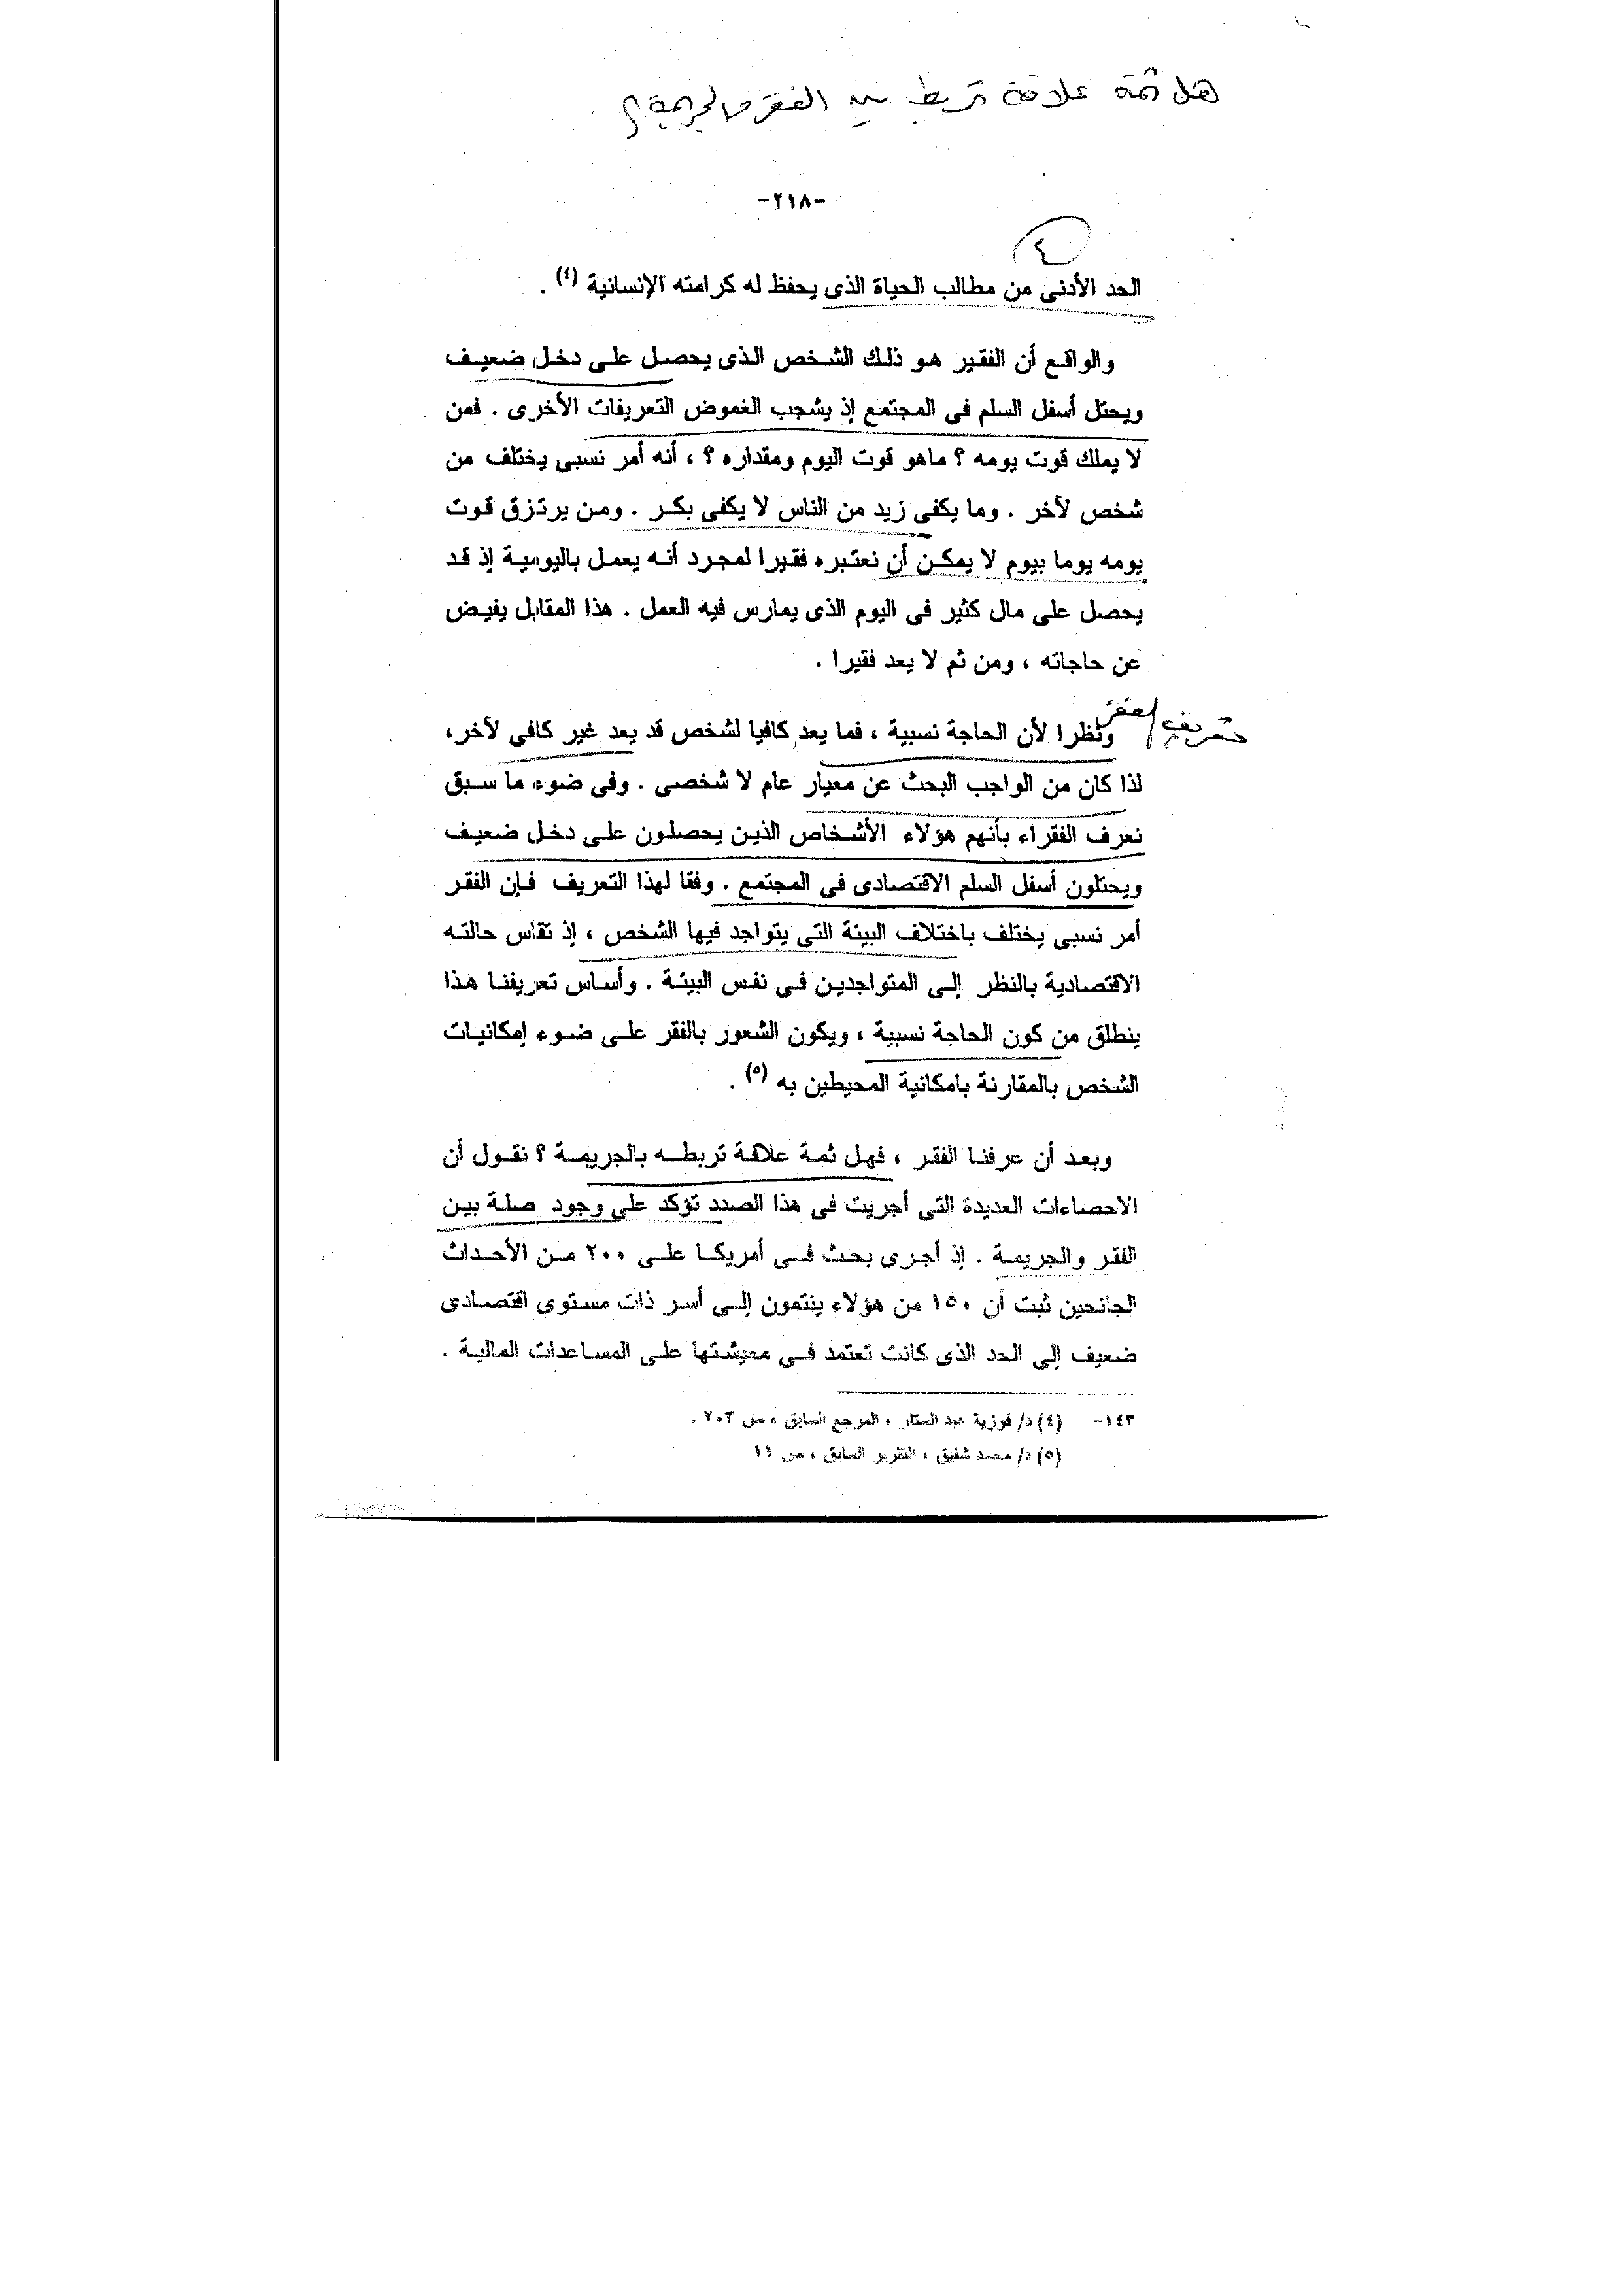 هل ثمة علاقة تربط بين الفقر والجريمة؟
-٢١٨-
٤
الحد الأدنى من مطالب الحياة الذى يحفظ له كرامته الإنسانية (٤) .
والواقع أن الفقير هو ذلك الشخص الذى يحصل على دخل ضعيف
ويحتل أسفل السلم فى المجتمع إذ يشجب الغموض التعريفات الأخرى . فمن
لا يملك قوت يومه ؟ ماهو قوت اليوم ومقداره ؟ ، أنه أمر نسبى يختلف من
شخص لآخر . وما يكفى زيد من الناس لا يكفى بكر . ومن يرتزق قوت
يومه يوما بيوم لا يمكن أن نعتبره فقيرا لمجرد أنه يعمل باليومية إذ قد
يحصل على مال كثير فى اليوم الذى يمارس فيه العمل . هذا المقابل يفيض
عن حاجاته ، ومن ثم لا يعد فقيرا .
تعريف الفقر
ونظرا لأن الحاجة نسبية ، فما يعد كافيا لشخص قد يعد غير كافى لآخر،
لذا كان من الواجب البحث عن معيار عام لا شخصى . وفى ضوء ما سبق
نعرف الفقراء بأنهم هؤلاء الأشخاص الذين يحصلون على دخل ضعيف
ويحتلون أسفل السلم الاقتصادى فى المجتمع . وفقا لهذا التعريف فإن الفقر
أمر نسبى يختلف باختلاف البيئة التى يتواجد فيها الشخص ، إذ تقاس حالته
الاقتصادية بالنظر إلى المتواجدين فى نفس البيئة . وأساس تعريفنا هذا
ينطلق من كون الحاجة نسبية ، ويكون الشعور بالفقر على ضوء إمكانيات
الشخص بالمقارنة بامكانية المحيطين به (٥) .
وبعد أن عرفنا الفقر ، فهل ثمة علاقة تربطه بالجريمة ؟ نقول أن
الاحصاءات العديدة التى أجريت فى هذا الصدد تؤكد على وجود صلة بين
الفقر والجريمة . إذ أجرى بحث فى أمريكا على ٢٠٠ من الأحداث
الجانحين ثبت أن ١٥٠ من هؤلاء ينتمون إلى أسر ذات مستوى اقتصادى
ضعيف إلى الحد الذى كانت تعتمد فى معيشتها على المساعدات المالية .
١٤٣- (٤) د/ فوزية عبد الستار ، المرجع السابق ، ص ٢٠٣ .
(٥) د/ محمد شفيق ، التقرير السابق ، ص ١١